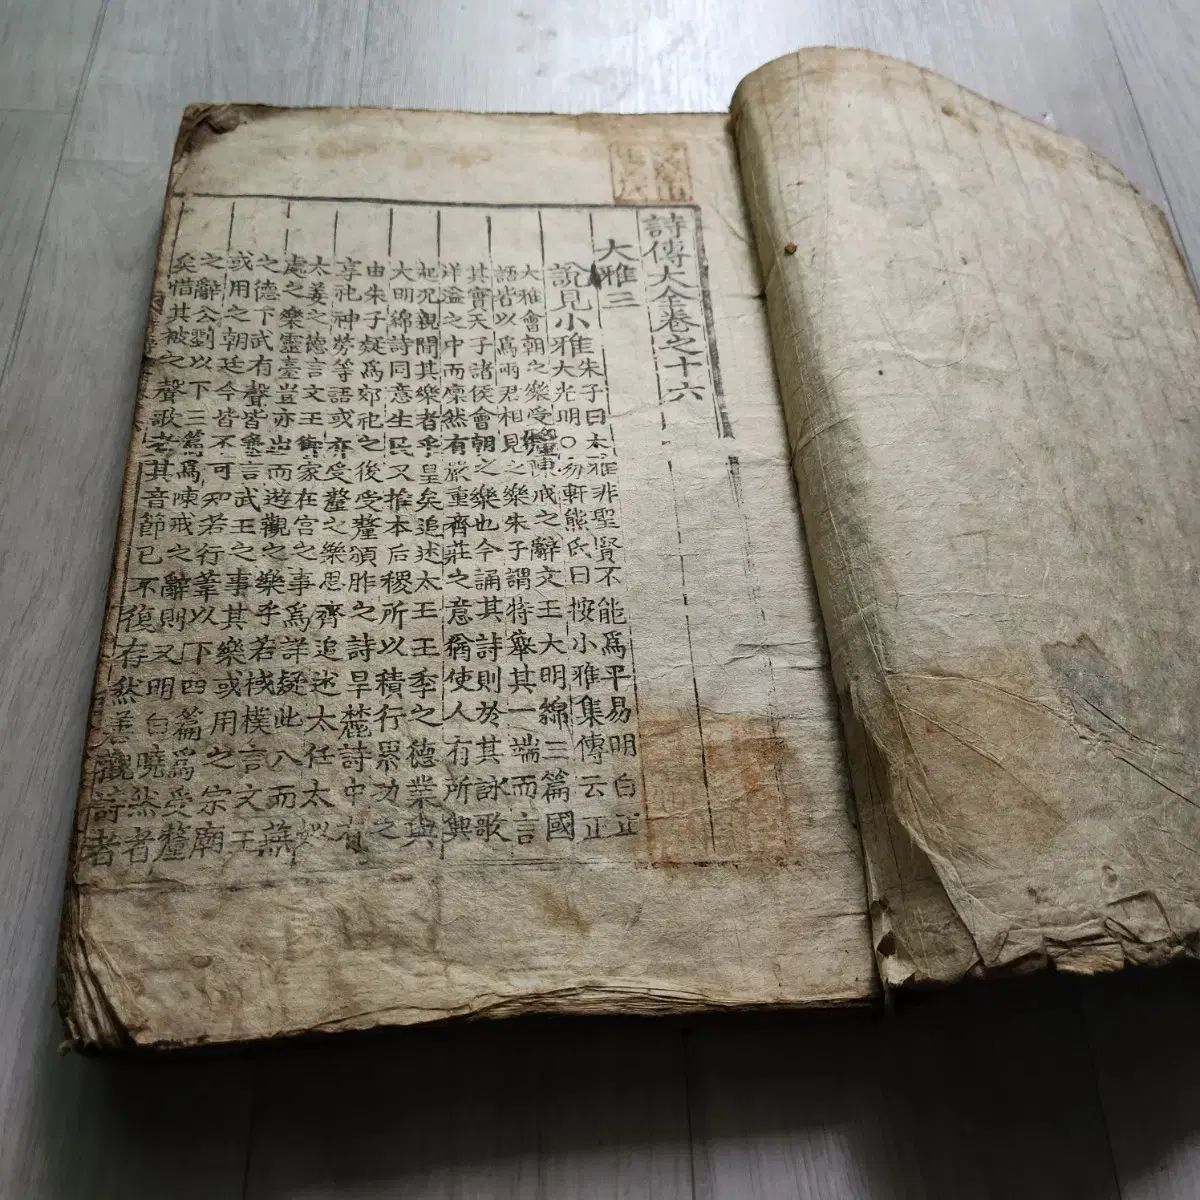 詩傳大全卷之十六
大雅三
說見小雅
朱子曰大雅非聖賢不能爲平易明白正
大光明○勿軒熊氏曰按小雅集傳云正
大雅會朝之樂受釐陳戒之辭文王大明綿三篇國
語皆以爲兩君相見之樂朱子謂特舉其一端而言
其實天子諸侯會朝之樂也今誦其詩則於其詠歌
洋溢之中而凜然有嚴重齊莊之意猶使人有所興
起况親聞其樂者乎皇矣追述太王王季之德業與
大明綿詩同意生民又推本后稷所以積行累功之
由朱子疑爲郊祀之後受釐頒胙之詩旱麓詩中有
享祀神勞等語或亦受釐之樂思齊追述太任太姒
太姜之德言文王齊家在宮之事爲詳疑此入而燕
處之樂靈臺豈亦出而遊觀之樂乎若棫樸言文王
之德下武有聲皆兼言武王之事其樂或用之宗廟
或用之朝廷今皆不可知若行葦以下四篇爲受釐
之辭公劉以下三篇爲陳戒之辭則又明白曉然者
矣惜其被之聲歌考其音節已不復存然善觀詩者